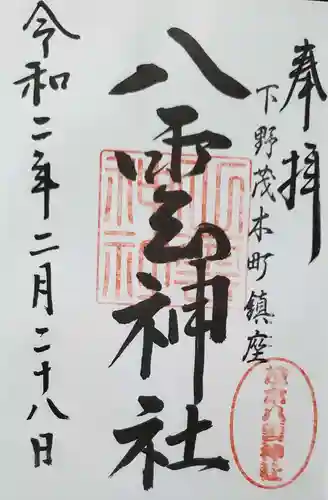 奉拝
下野茂木町鎮座
八雲神社
令和二年二月二十八日
茂木八雲神社